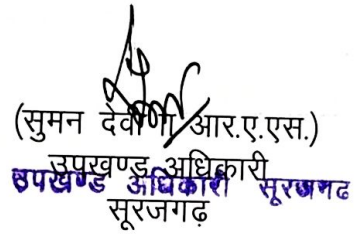 (सुमन देवी आर.ए.एस.)
उपखण्ड अधिकारी
उपखण्ड अधिकारी सूरजगढ
सूरजगढ़